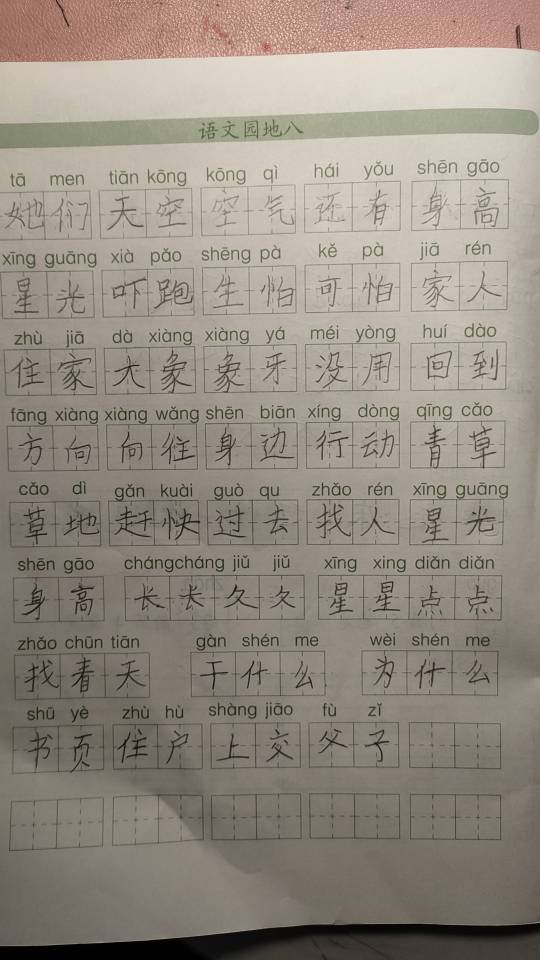 语文园地八
tā men tiān kōng kōng qì hái yǒu shēn gāo
她们 天空 空气 还有 身高
xīng guāng xià pǎo shēng pà kě pà jiā rén
星光 吓跑 生怕 可怕 家人
zhù jiā dà xiàng xiàng yá méi yòng huí dào
住家 大象 象牙 没用 回到
fāng xiàng xiàng wǎng shēn biān xíng dòng qīng cǎo
方向 向往 身边 行动 青草
cǎo dì gǎn kuài guò qu zhǎo rén xīng guāng
草地 赶快 过去 找人 星光
shēn gāo chángcháng jiǔ jiǔ xīng xing diǎn diǎn
身高 长长久久 星星点点
zhǎo chūn tiān gàn shén me wèi shén me
找春天 干什么 为什么
shū yè zhù hù shàng jiāo fù zǐ
书页 住户 上交 父子